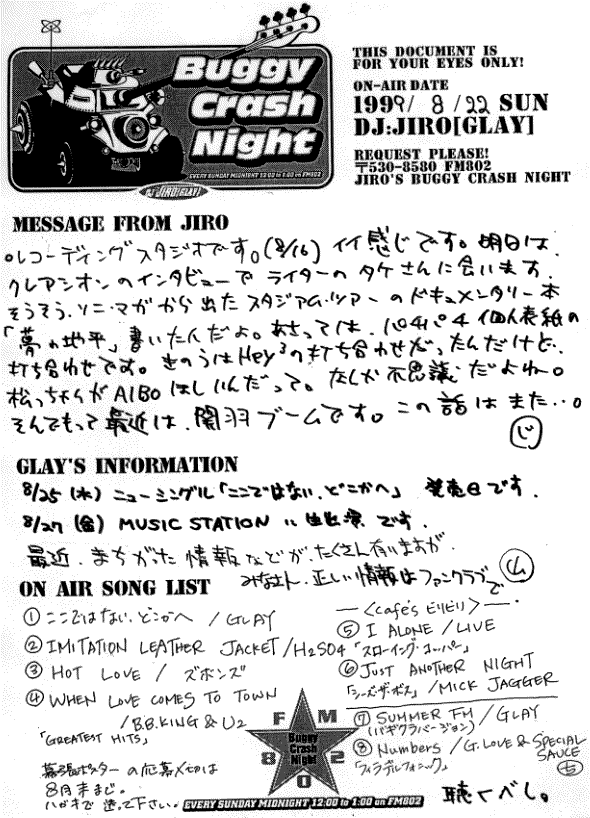 Buggy
Crash
Night
EVERY SUNDAY MIDNIGHT 12:00 to 1:00 on FM802
DJ:JIRO[GLAY]
THIS DOCUMENT IS
FOR YOUR EYES ONLY!
ON-AIR DATE
1999/8/22 SUN
DJ:JIRO[GLAY]
REQUEST PLEASE!
〒530-8580 FM802
JIRO'S BUGGY CRASH NIGHT
MESSAGE FROM JIRO
。レコーディングスタジオです。(8/16) イイ感じです。明日は、
クレアシオンのインタビューでライターのタケさんに会います。
そうそう、ソニ・マガから出たスタジアム・ツアーのドキュメンタリー本
「夢の地平」書いたんだよ。あさっては、パチパチ個人表紙の
打ち合わせです。きのうはHey³の打ち合わせだったんだけど、
松っちゃんがAIBOほしいんだって。なんか不思議だよね。
そんでもって最近は、関羽ブームです。この話はまた…。
(じ)
GLAY'S INFORMATION
8/25(水) ニューシングル「ここではない、どこかへ」発売日です。
8/27(金) MUSIC STATIONに生出演です。
最近、まちがった情報などが、たくさん有りますが、
みなさん、正しい情報はファンクラブで
ON AIR SONG LIST
① ここではない、どこかへ / GLAY
② IMITATION LEATHER JACKET/H2SO4
③ HOT LOVE / ズボンズ
④ WHEN LOVE COMES TO TOWN
/B.B.KING & U2
「GREATEST HITS」
幕張ポスターの応募〆切は
8月末まで。
ハガキで送って下さい。
―<Cafe's ビリビリ>―
⑤ I ALONE / LIVE
「スローイング・コッパー」
⑥ JUST ANOTHER NIGHT
「シーズ・ザ・ボス」/MICK JAGGER
⑦ SUMMER FM / GLAY
(バギクラバージョン)
⑧ Numbers / G.LOVE & SPECIAL
SAUCE
「フィラデルフォニック」
聴くべし。
FM802
Buggy
Crash
Night
EVERY SUNDAY MIDNIGHT 12:00 to 1:00 on FM802